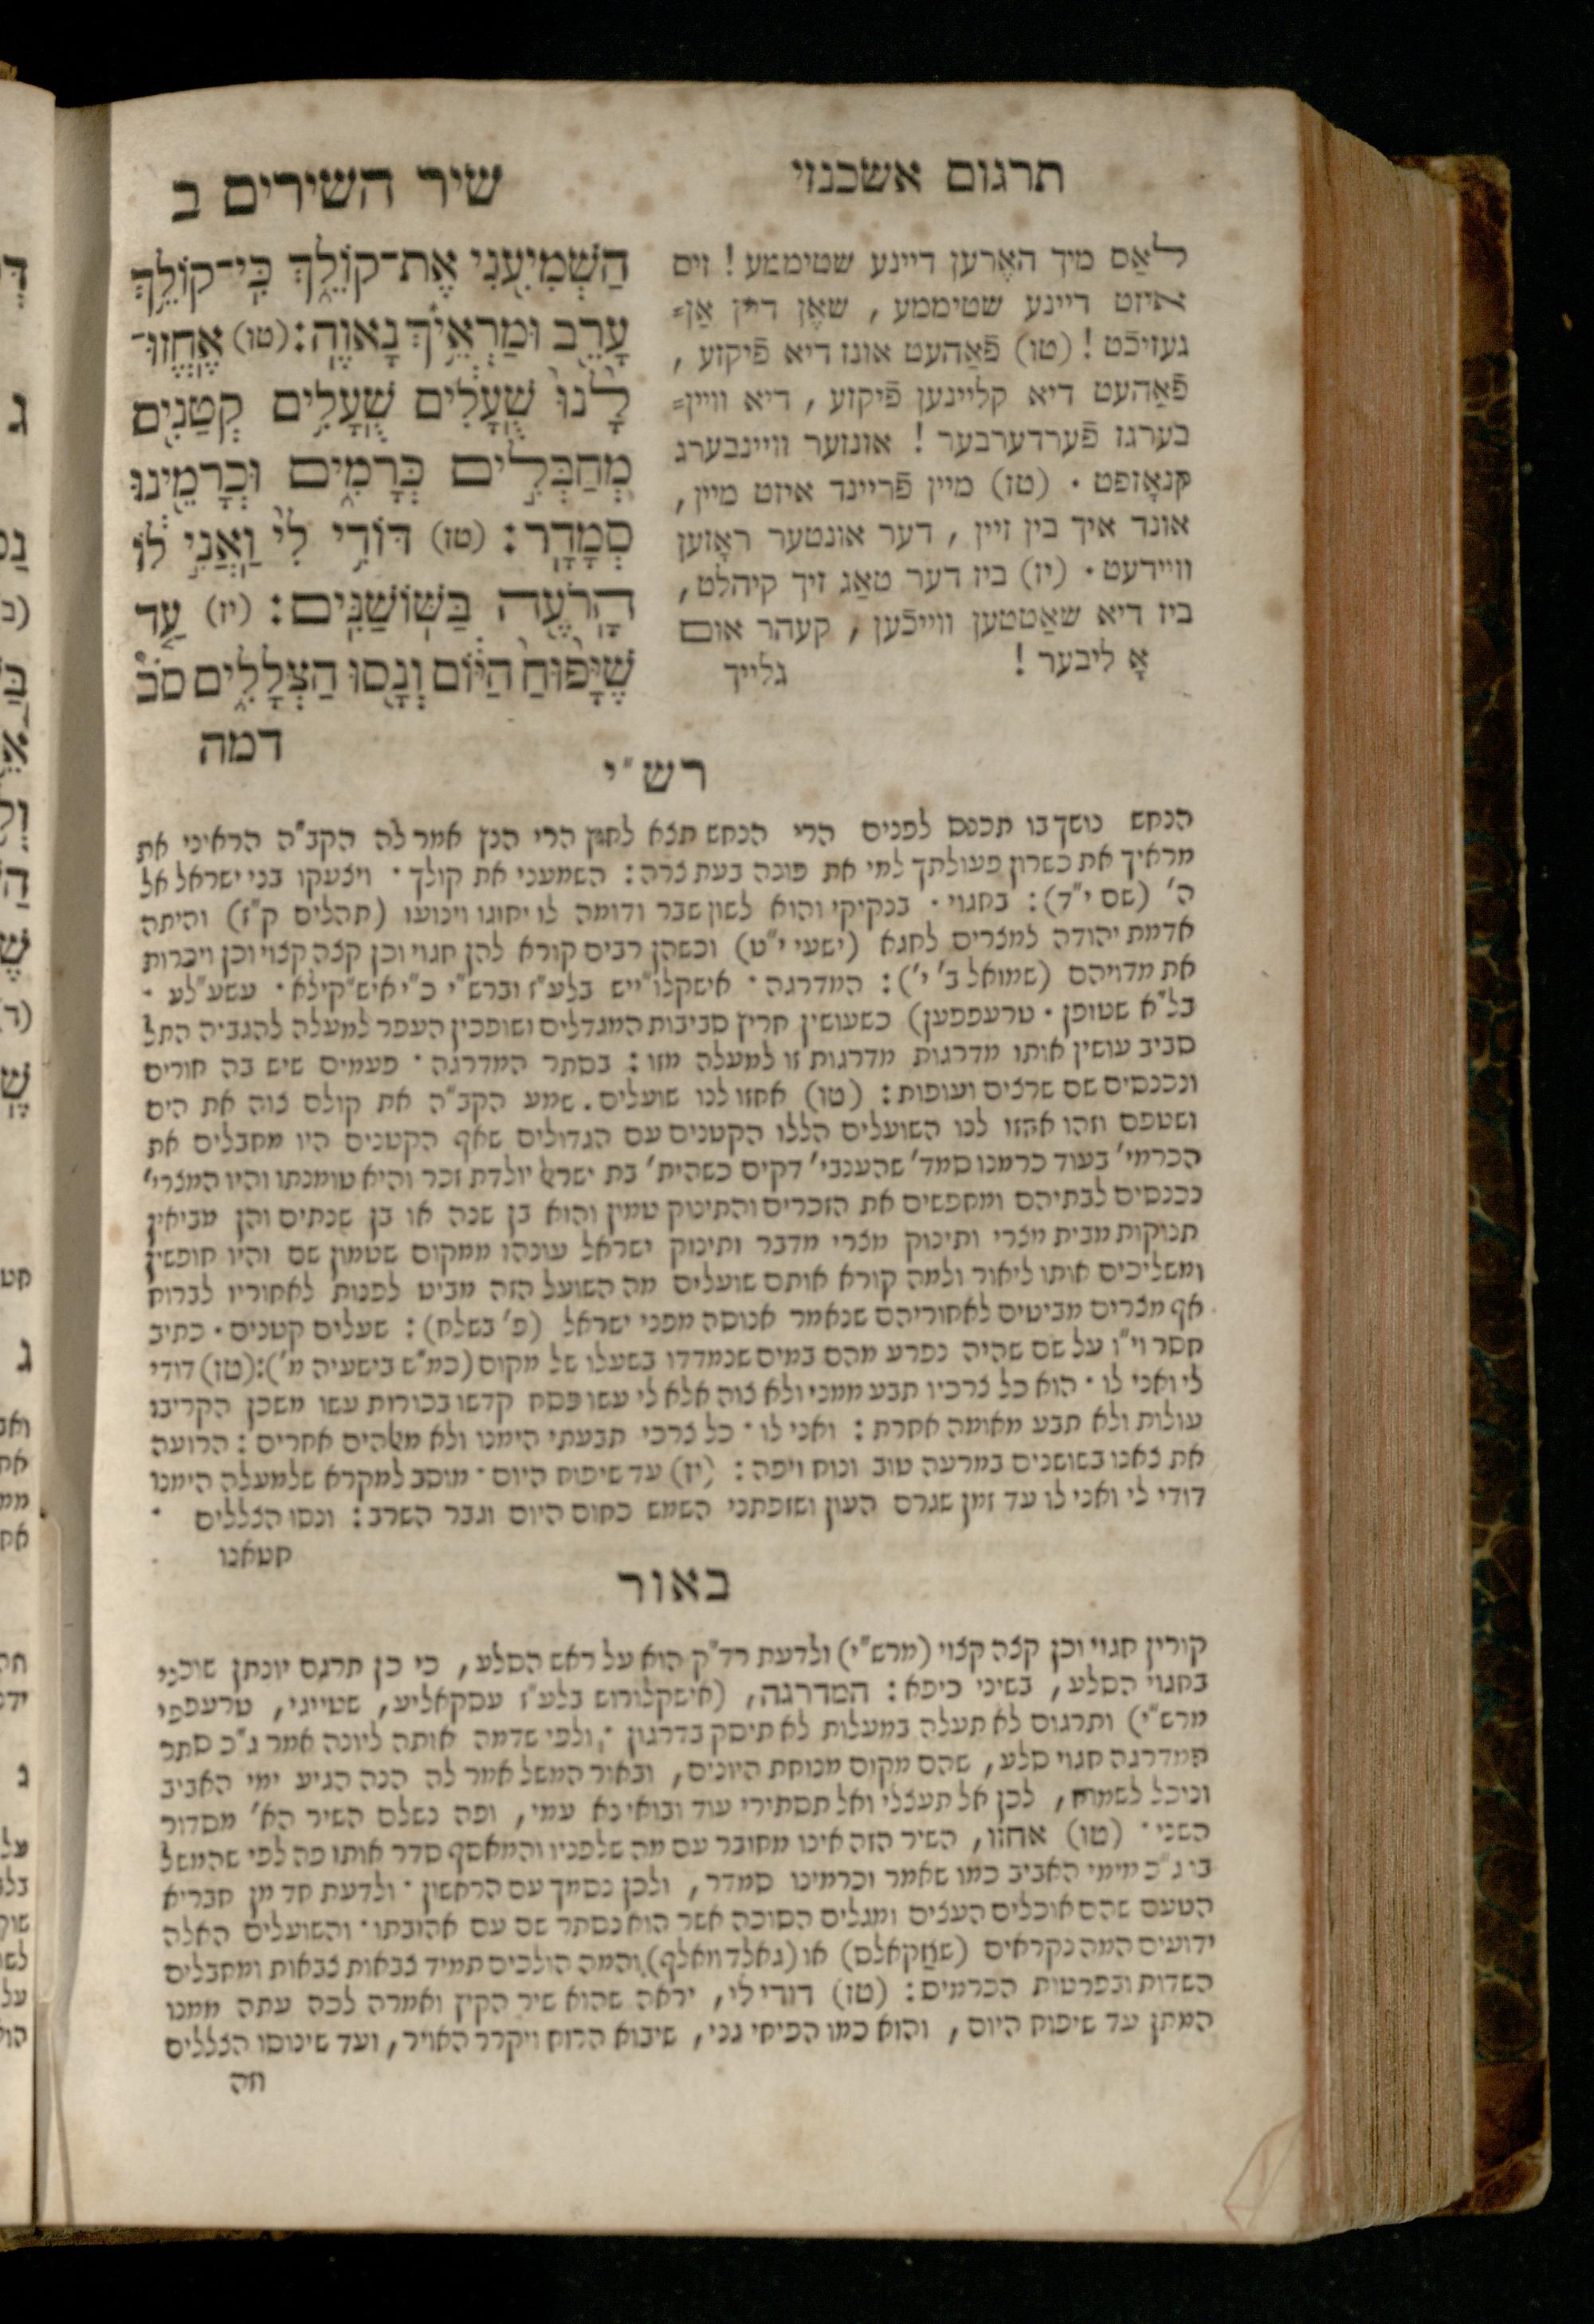 תרגום אשכנזי
שיר השירים ב
לאַס מיך האָרען דיינע שטיממע! זיס
איזט דיינע שטיממע, שאָן דיין אַנ=
געזיכֿט! (טו) פֿאַהעט אונז דיא פֿיקזע,
פֿאַהעט דיא קליינען פֿיקזע, דיא וויינ=
בערגז פֿערדערבער! אונזער וויינבערג
קנאָזפט. (טז) מיין פֿריינד איזט מיין,
אונד איך בין זיין, דער אונטער ראָזען
וויידעט. (יז) ביז דער טאַג זיך קיהלט,
ביז דיא שאַטטען ווייכֿען, קעהר אום
אָ ליבער! גלייך
הַשְׁמִיעִנִי אֶת־קוֹלֵךְ כִּי־קוֹלֵךְ
עָרֵב וּמַרְאֵיךְ נָאוֶה: (טו) אֶחֱזוּ־
לָנוּ שֻׁעָלִים שֻׁעָלִים קְטַנִּים
מְחַבְּלִים כְּרָמִים וּכְרָמֵינוּ
סְמָדַר: (טז) דּוֹדִי לִי וַאֲנִי לוֹ
הָרֹעֶה בַּשּׁוֹשַׁנִּים: (יז) עַד
שֶׁיָּפוּחַ הַיּוֹם וְנָסוּ הַצְּלָלִים סֹב
דמה
רש"י
הנחש נושך בו תכנס לפנים הרי הנחש תצא לחוץ הרי הנץ אמר לה הקב"ה הראיני את
מראיך את כשרון פעולתך למי את פונה בעת צרה: השמעני את קולך · ויצעקו בני ישראל אל
ה' (שם י"ד): בחגוי · בנקיקי והוא לשון שבר ודומה לו יחוגו וינועו (תהלים ק"ז) והיתה
אדמת יהודה למצרים לחגא (ישעי' י"ט) וכשהן רבים קורא להן חגוי וכן קצה קצוי וכן ויכרות
את מדויהם (שמואל ב' י'): המדרגה · אישקלו"ייש בלע"ז וברש"י כ"י איש"קילא · עשע"לע ·
בל"א שטופן · טרעפפען) כשעושין חריץ סביבות המגדלים ושופכין העפר למעלה להגביה התל
סביב עושין אותו מדרגות מדרגות זו למעלה מזו: בסתר המדרגה · פעמים שיש בה חורים
ונכנסים שם שרצים ועופות: (טו) אחזו לנו שועלים. שמע הקב"ה את קולם צוה את הים
ושטפם וזהו אחזו לנו השועלים הללו הקטנים עם הגדולים שאף הקטנים היו מחבלים את
הכרמי' בעוד כרמנו סמד' שהענבי' דקים כשהית' בת ישראל יולדת זכר והיא טומנתו והיו המצרי'
נכנסים לבתיהם ומחפשים את הזכרים והתינוק טמין והוא בן שנה או בן שנתים והן מביאין
תנוקות מבית מצרי ותינוק מצרי מדבר ותינוק ישראל עונהו ממקום שטמון שם והיו תופשין
ומשליכים אותו ליאור ולמה קורא אותם שועלים מה השועל הזה מביט לפנות לאחוריו לברוח
אף מצרים מביטים לאחוריהם שנאמר אנוסה מפני ישראל (פ' בשלח): שעלים קטנים · כתיב
חסר וי"ו על שם שהיה נפרע מהם במים שנמדדו בשעלו של מקום (כמ"ש בישעיה מ'): (טז) דודי
לי ואני לו · הוא כל צרכיו תבע ממני ולא צוה אלא לי עשו פסח קדשו בכורות עשו משכן הקריבו
עולות ולא תבע מאומה אחרת: ואני לו · כל צרכי תבעתי הימנו ולא מאלהים אחרים: הרועה
את צאנו בשושנים במרעה טוב ונוח ויפה: (יז) עד שיפוח היום · מוסב למקרא שלמעלה הימנו
דודי לי ואני לו עד זמן שגרם העון ושזפתני השמש כחום היום וגבר השרב: ונסו הצללים ·
חטאנו
באור
קורין חגוי וכן קצה קצוי (מרש"י) ולדעת רד"ק הוא על ראש הסלע, כי כן תרגם יונתן שוכני
בחגוי הסלע, בשיני כיפא: המדרגה, (אישקלורוש בלע"ז עסקאליע, שטייגי, טרעפפי
מרש"י) ותרגום לא תעלה במעלות לא תיסק בדרגון · ולפי שדמה אותה ליונה אמר ג"כ סתר
המדרגה חגוי סלע, שהם מקום מנוחת היונים, ובאור המשל אמר לה הנה הגיע ימי האביב
ונוכל לשמוח, לכן אל תעצלי ואל תסתירי עוד ובואי נא עמי, ופה נשלם השיר הא' מסדור
השני · (טו) אחזו, השיר הזה אינו מחובר עם מה שלפניו והמאסף סדר אותו פה לפי שהמשל
בו ג"כ מימי האביב כמו שאמר וכרמינו סמדר, ולכן נסמך עם הראשון · ולדעת חד מן חבריא
הטעם שהם אוכלים העצים ומגלים הסוכה אשר הוא נסתר שם עם אהובתו · והשועלים האלה
ידועים המה נקראים (שאַקאלס) או (גאלד וואלף) והמה הולכים תמיד צבאות צבאות ומחבלים
השדות ובפרטות הכרמים: (טז) דודי לי, יראה שהוא שיר הקיץ ואמרה לכה עתה ממנו
המתן עד שיפוח היום, והוא כמו הפיחי גני, שיבוא הרוח ויקרר האויר, ועד שינוסו הצללים
וזה